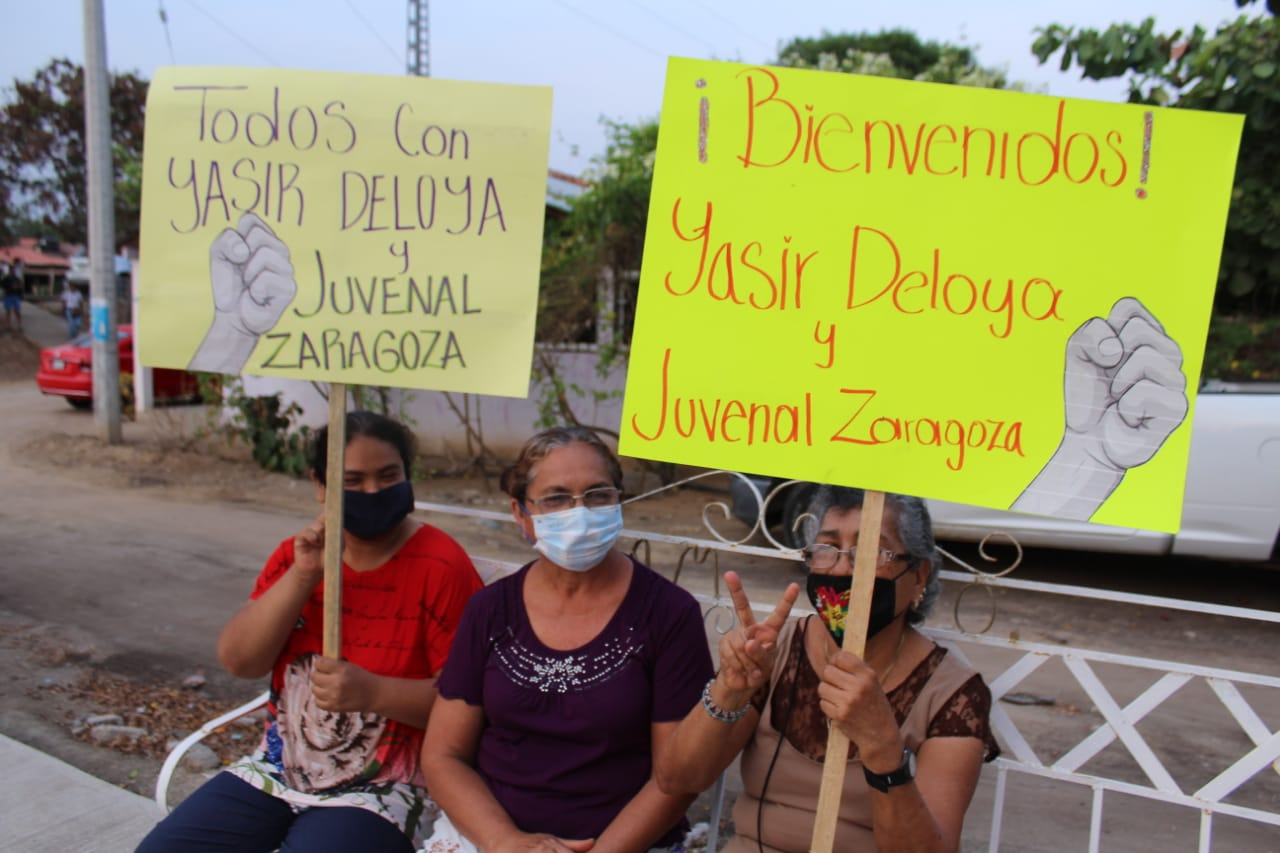 Todos Con
YASIR DELOYA
y
JUVENAL
ZARAGOZA
¡Bienvenidos!
Yasir Deloya
y
Juvenal Zaragoza